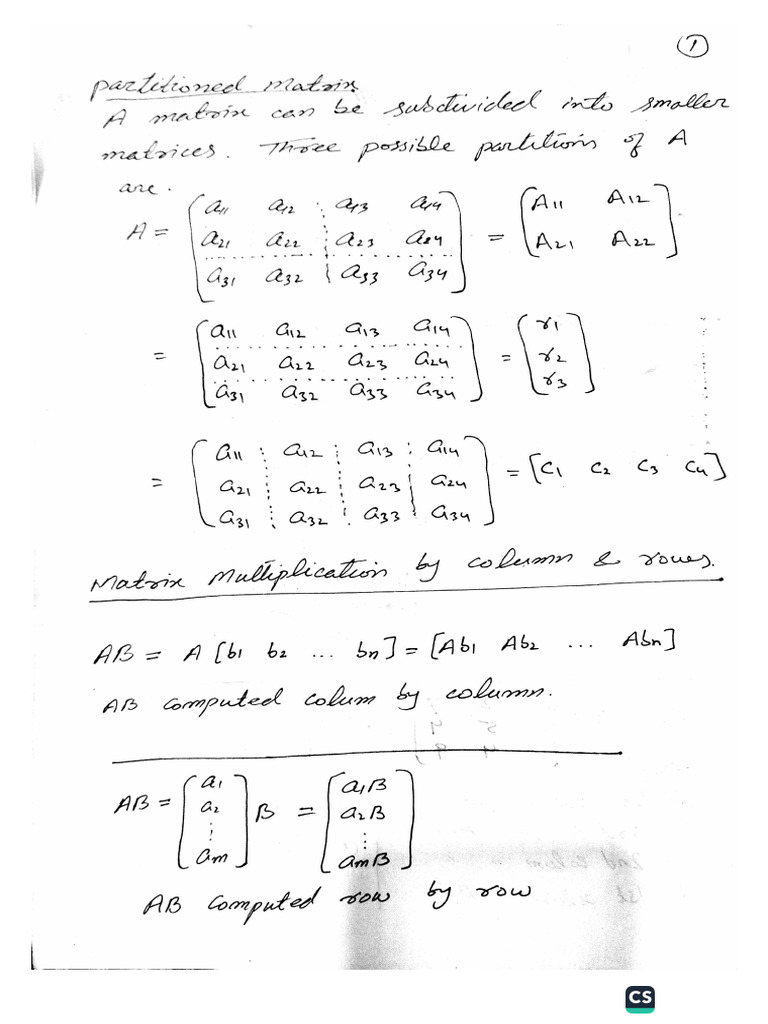 1
partitioned Matrix
A matrix can be subdivided into smaller
matrices. Three possible partitions of A
are.
A = [ a11 a12 ⋮ a13 a14
a21 a22 ⋮ a23 a24
a31 a32 ⋮ a33 a34 ] = [ A11 A12
A21 A22 ]
= [ a11 a12 a13 a14
a21 a22 a23 a24
a31 a32 a33 a34 ] = [ r1
r2
r3 ]
= [ a11 ⋮ a12 ⋮ a13 ⋮ a14
a21 ⋮ a22 ⋮ a23 ⋮ a24
a31 ⋮ a32 ⋮ a33 ⋮ a34 ] = [c1 c2 c3 c4]
Matrix Multiplication by column & rows.
AB = A [b1 b2 ... bn] = [Ab1 Ab2 ... Abn]
AB computed colum by column.
AB = [ a1
a2
⋮
am ] B = [ a1B
a2B
⋮
amB ]
AB computed row by row
CS